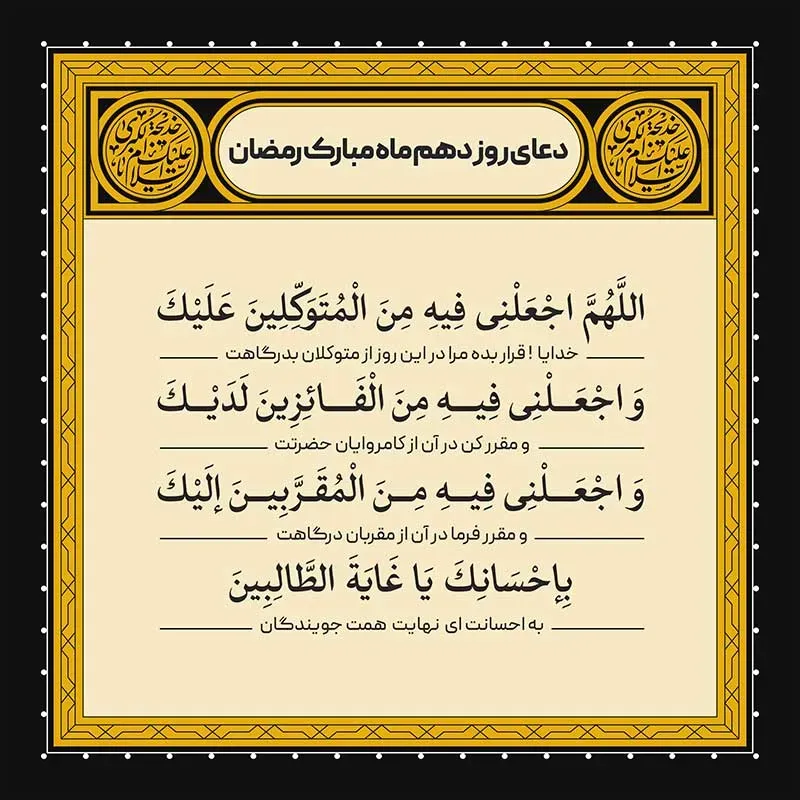 دعای روز دهم ماه مبارک رمضان
اللَّهُمَّ اجْعَلْنِی فِیهِ مِنَ الْمُتَوَکِّلِینَ عَلَیْكَ
خدایا ! قرار بده مرا در این روز از متوکلان بدرگاهت
وَ اجْعَلْنِی فِیهِ مِنَ الْفَائِزِینَ لَدَیْكَ
و مقرر کن در آن از کامروایان حضرتت
وَ اجْعَلْنِی فِیهِ مِنَ الْمُقَرَّبِینَ إِلَیْكَ
و مقرر فرما در آن از مقربان درگاهت
بِإِحْسَانِكَ یَا غَایَةَ الطَّالِبِینَ
به احسانت ای نهایت همت جویندگان